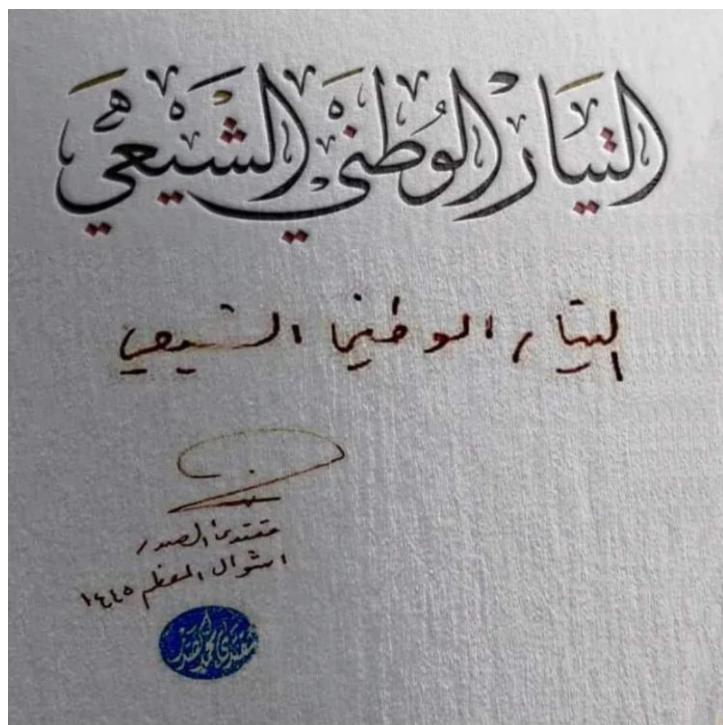 التيار الوطني الشيعي
التيار الوطني الشيعي
مقتدى الصدر
١ شوال المعظم ١٤٤٥
مقتدى الصدر